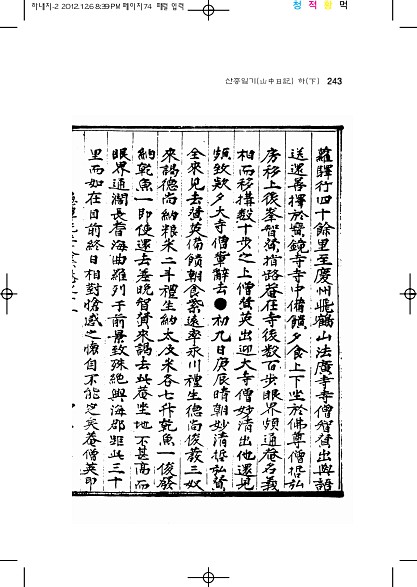 하네지-2 2012.12.6 8:39 PM 페이지74 패럴 입력
청 적 황 먹
산중일기(山中日記) 하(下) 243
蘿驛行四十餘里至慶州飛鶴山法廣寺寺僧智賛出與語
送還㝷擇於 鏡寺寺中備饋夕食上下坐於佛尊僧哲弘
房移上後峯智賛指路菴在寺後数百步眼界頻通菴名義
相而移搆数十步之上僧賛英出迎大寺僧妙清出他還見
頻致款夕大寺僧軰辭去●初九日庚辰晴朝妙清哲弘賛
全來見去賛英備饋朝食 遠率永川禮生德尚俊發三奴
來謁德尚納粮米二斗禮生納太皮米各七升乾魚一俊發
納乾魚一即使還去 晚智賛來謁去此菴坐地不甚高而
眼界通濶長看海曲羅列于前景致殊絶與海郡距此三十
里而如在目前終日相對愴感之懷自不能定矣菴僧英印